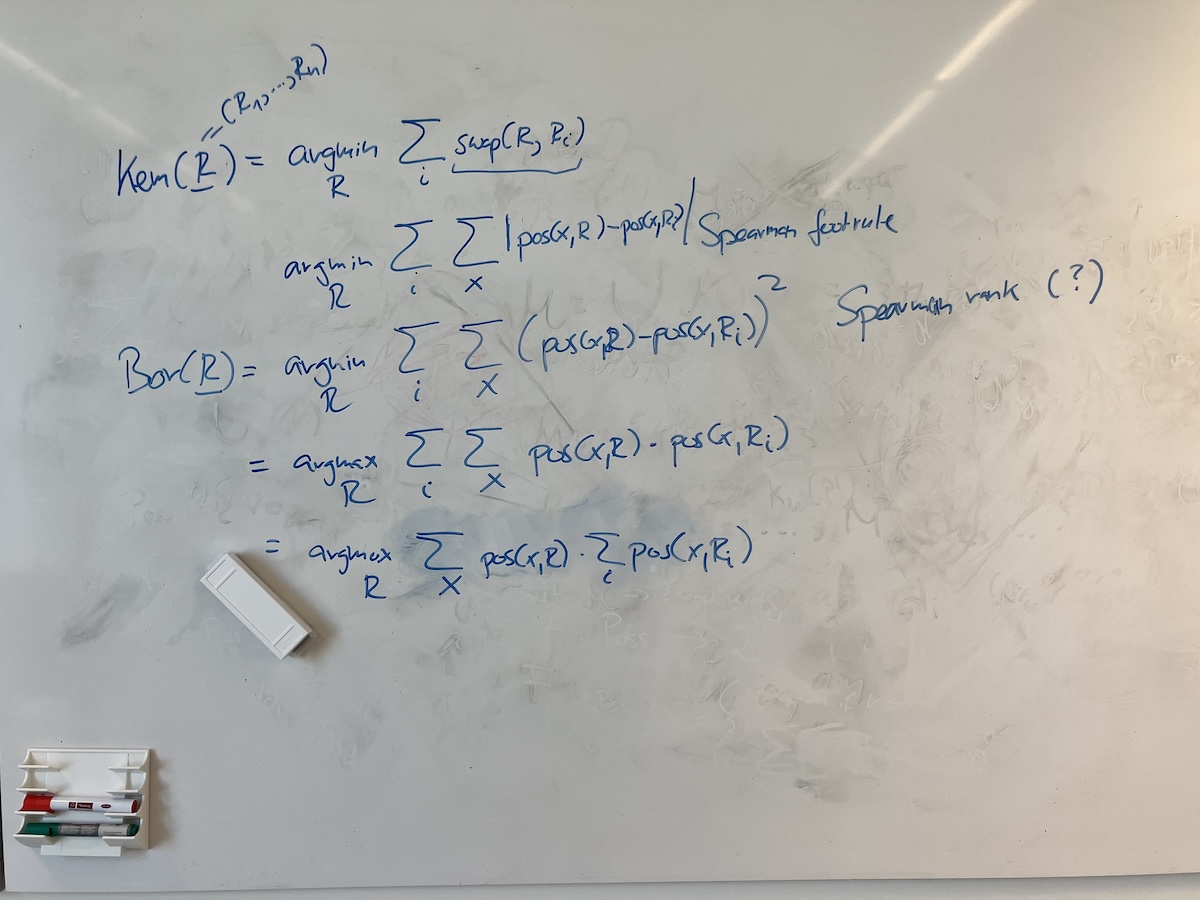 = (R₁,...,Rₙ)
Kem(R̲) = argmin_R ∑_i swap(R, R_i)
argmin_R ∑_i ∑_x |pos(x,R) - pos(x,R_i)| Spearman footrule
Bor(R̲) = argmin_R ∑_i ∑_x (pos(x,R) - pos(x,R_i))² Spearman rank (?)
= argmax_R ∑_i ∑_x pos(x,R) · pos(x,R_i)
= argmax_R ∑_x pos(x,R) · ∑_i pos(x,R_i)